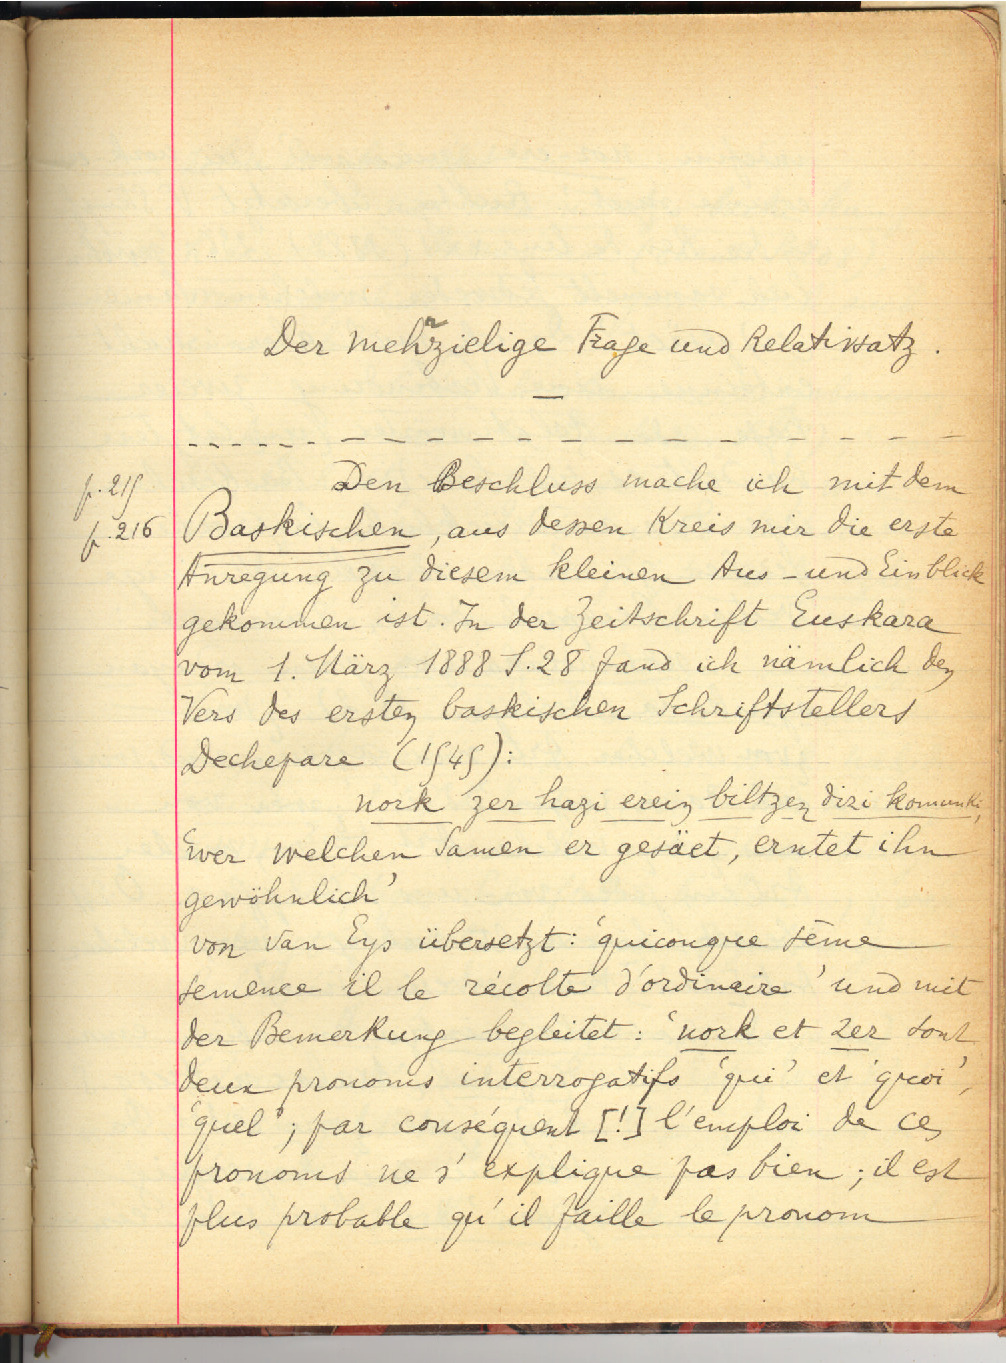 Der mehrzielige Frage und Relativsatz.
—
p. 215
p. 216
Den Beschluss mache ich mit dem
Baskischen, aus dessen Kreis mir die erste
Anregung zu diesem kleinen Aus- und Einblick
gekommen ist. In der Zeitschrift Euskara
vom 1. März 1888 S. 28 fand ich nämlich den
Vers des ersten baskischen Schriftstellers
Dechepare (1545):
nork zer hazi erein biltzen dizi komunki,
'wer welchen Samen er gesäet, erntet ihn
gewöhnlich'
von Van Eys übersetzt: 'quiconque sème
semence il le récolte d'ordinaire' und mit
der Bemerkung begleitet: 'nork et zer sont
deux pronoms interrogatifs 'qui' et 'quoi',
'quel'; par conséquent [!] l'emploi de ces
pronoms ne s'explique pas bien; il est
plus probable qu'il faille le pronom